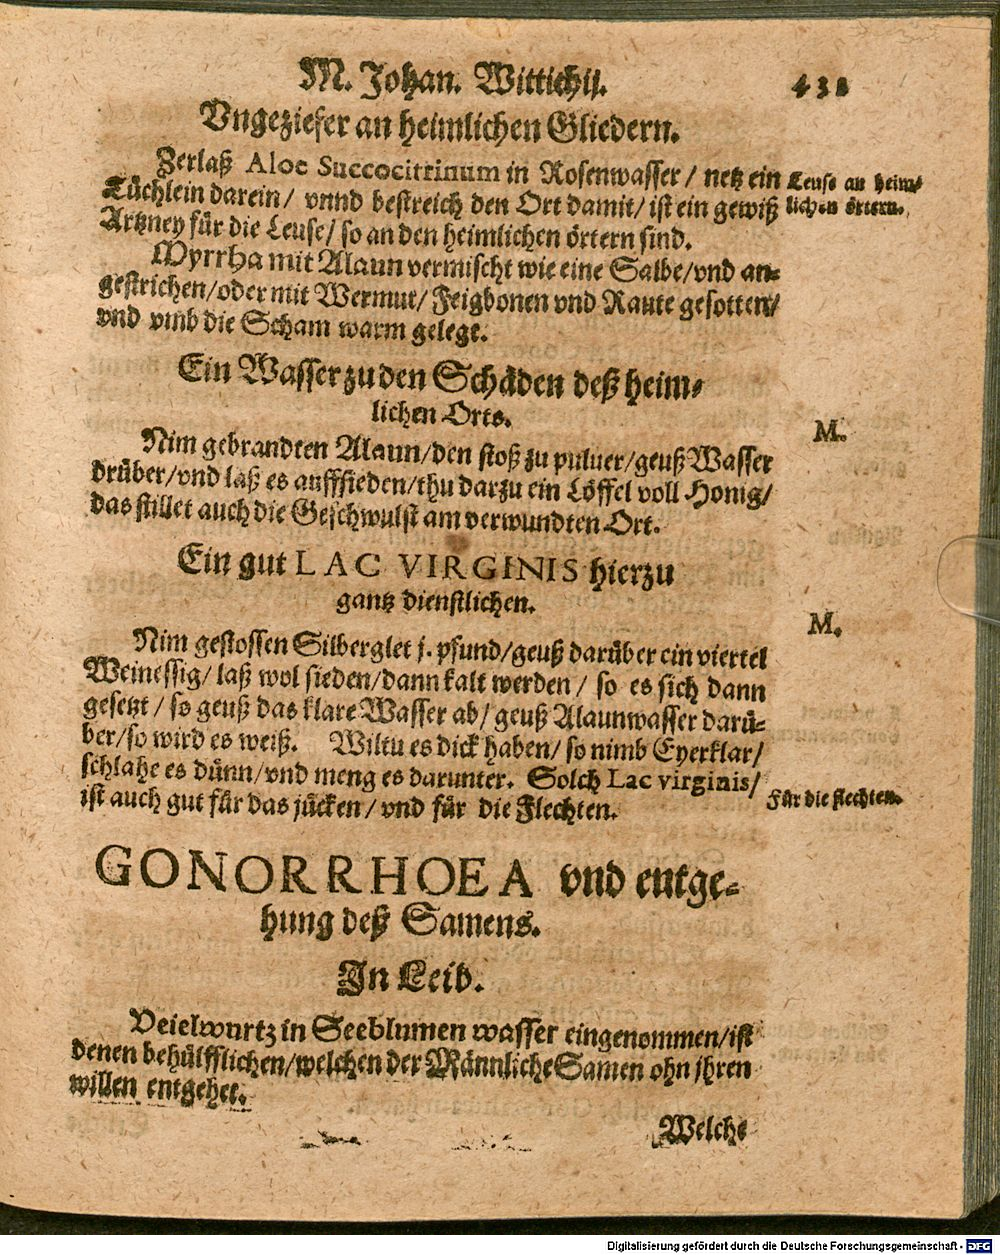 M. Johan. Wittichij. 438
Vngeziefer an heimlichen Gliedern.
Zerlaß Aloe Succocitrinum in Rosenwasser / netz ein
Tüchlein darein / vnnd bestreich den Ort damit / ist ein gewiß
Artzney für die Leuse / so an den heimlichen örtern sind.
Leuse an heim-
lichen örtern.
Myrrha mit Alaun vermischt wie eine Salbe / vnd an-
gestrichen / oder mit Wermut / Feigbonen vnd Raute gesotten /
vnd vmb die Scham warm gelegt.
Ein Wasser zu den Schäden deß heim-
lichen Orts.
M.
Nim gebrandten Alaun / den stoß zu puluer / geuß Wasser
drüber / vnd laß es auffsieden / thu darzu ein Löffel voll Honig /
das stillet auch die Geschwulst am verwundten Ort.
Ein gut LAC VIRGINIS hierzu
gantz dienstlichen.
M.
Nim gestossen Silberglet j. pfund / geuß darüber ein viertel
Weinessig / laß wol sieden / dann kalt werden / so es sich dann
gesetzt / so geuß das klare Wasser ab / geuß Alaunwasser darü-
ber / so wird es weiß. Wiltu es dick haben / so nimb Eyerklar /
schlahe es dünn / vnd meng es darunter. Solch Lac virginis /
ist auch gut für das jücken / vnd für die Flechten.
Für die flechten.
GONORRHOEA vnd entge-
hung deß Samens.
In Leib.
Veielwurtz in Seeblumen wasser eingenommen / ist
denen behülfflichen / welchen der Männliche Samen ohn ihren
willen entgehet.
Welche
Digitalisierung gefördert durch die Deutsche Forschungsgemeinschaft - DFG